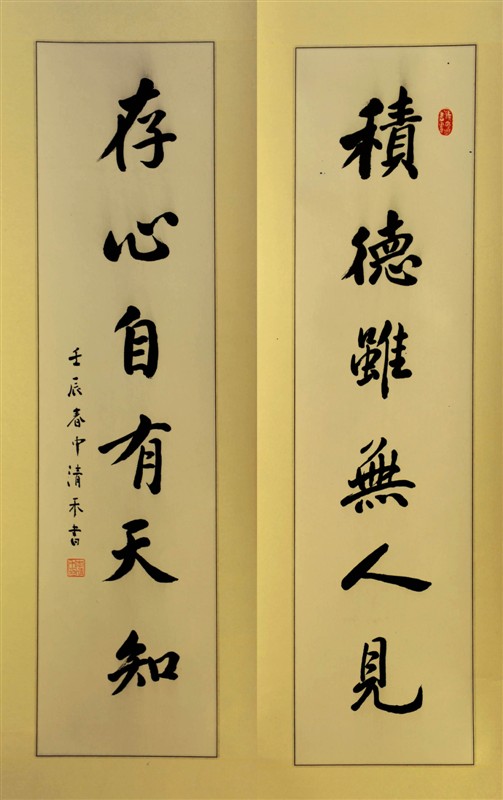 積德雖無人見
存心自有天知
壬辰春中清禾書